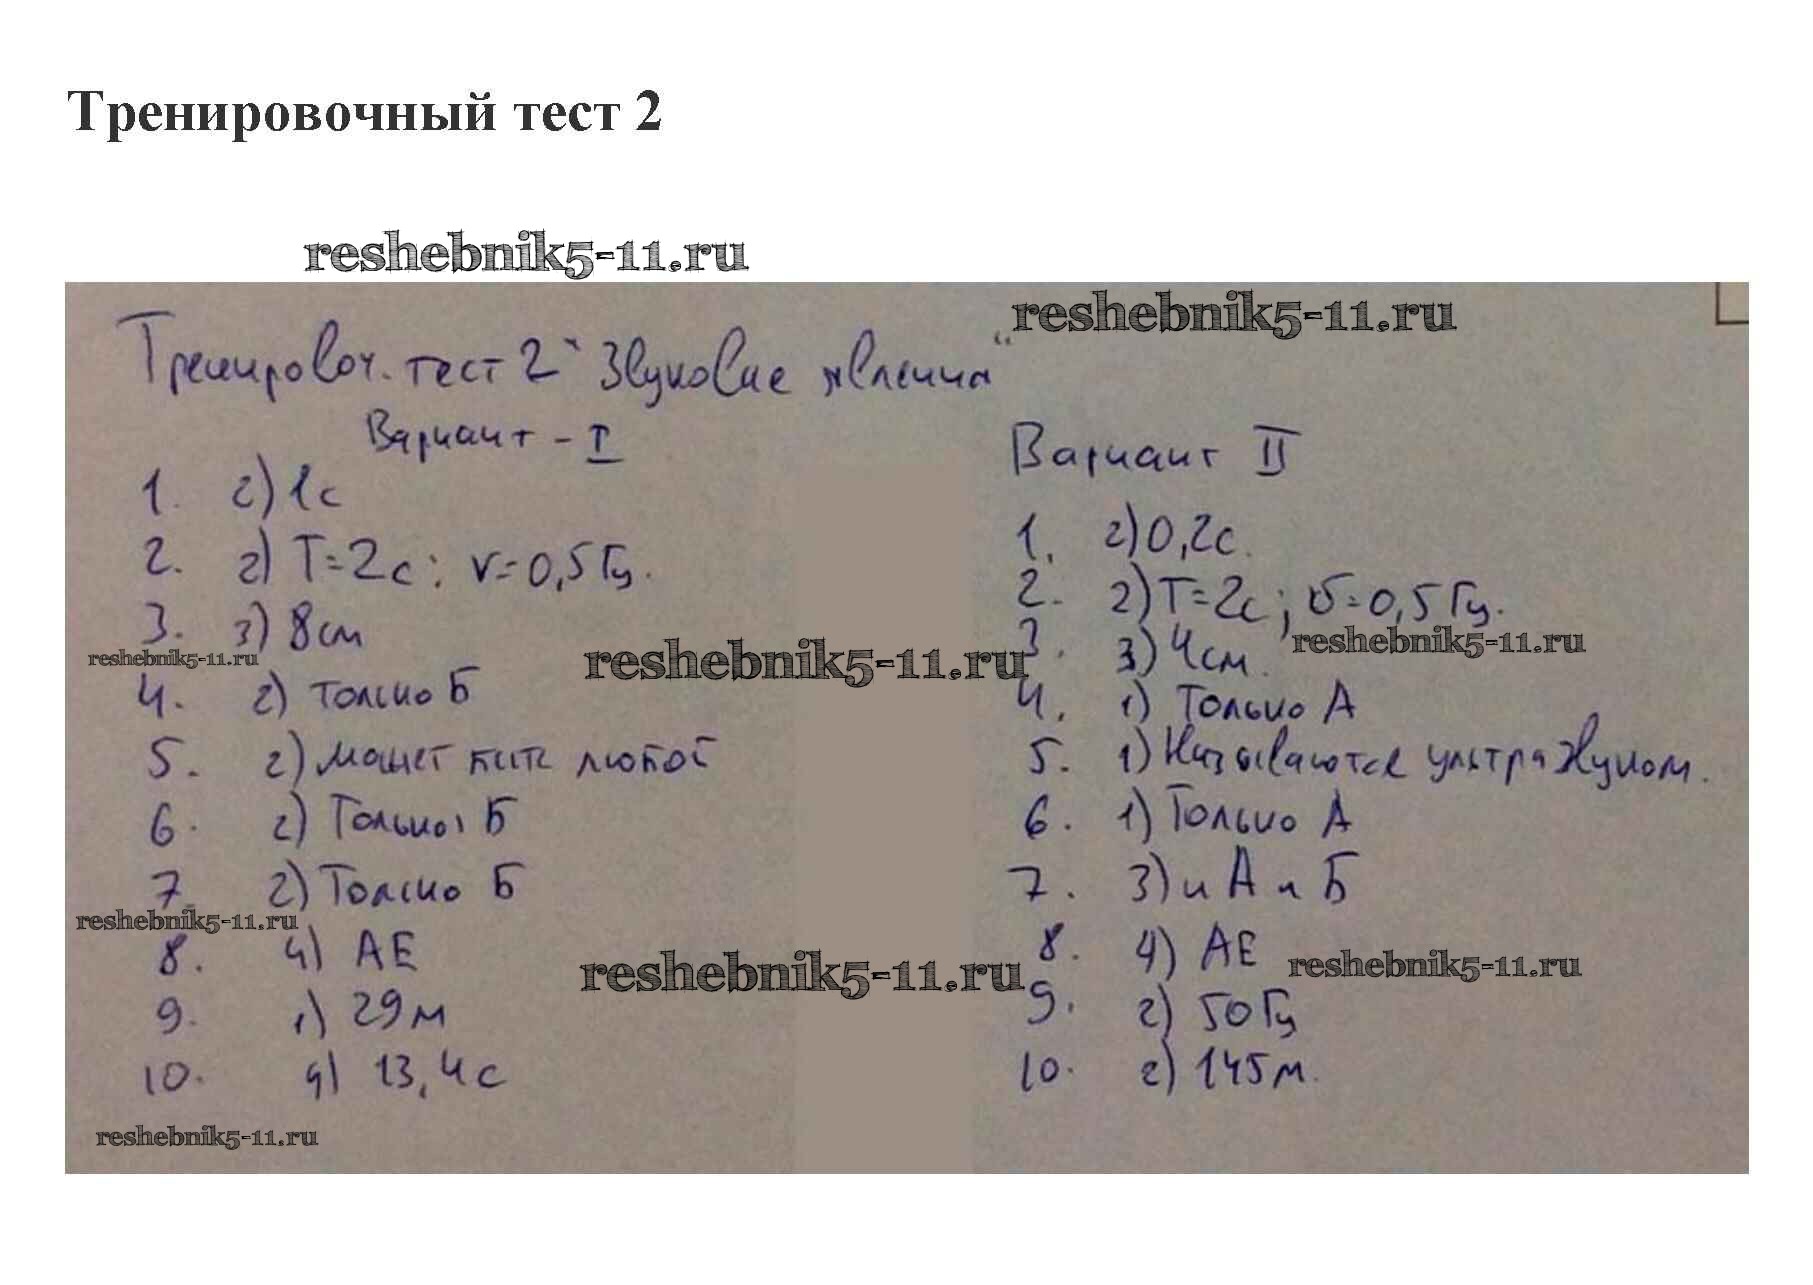 Тренировочный тест 2
reshebnik5-11.ru
reshebnik5-11.ru
Тренировоч. тест 2 "Звуковые явления"
Вариант - I
1. 2) 1с
2. 2) T=2с; ν=0,5Гц.
3. 3) 8см
reshebnik5-11.ru
4. 2) только Б
5. 2) может быть любой
6. 2) Только Б
7 2) Только Б
reshebnik5-11.ru
8. 4) АЕ
9. 1) 29м
10. 4) 13,4с
reshebnik5-11.ru
reshebnik5-11.ru
reshebnik5-11.ru
Вариант II
1. 2) 0,2с.
2. 2) T=2с; υ=0,5Гц.
reshebnik5-11.ru
3. 3) 4см.
4. 1) Только А
5. 1) Называются ультразвуком.
6. 1) Только А
7. 3) и А и Б
8. 4) АЕ
reshebnik5-11.ru
9. 2) 50Гц
10. 2) 145м.